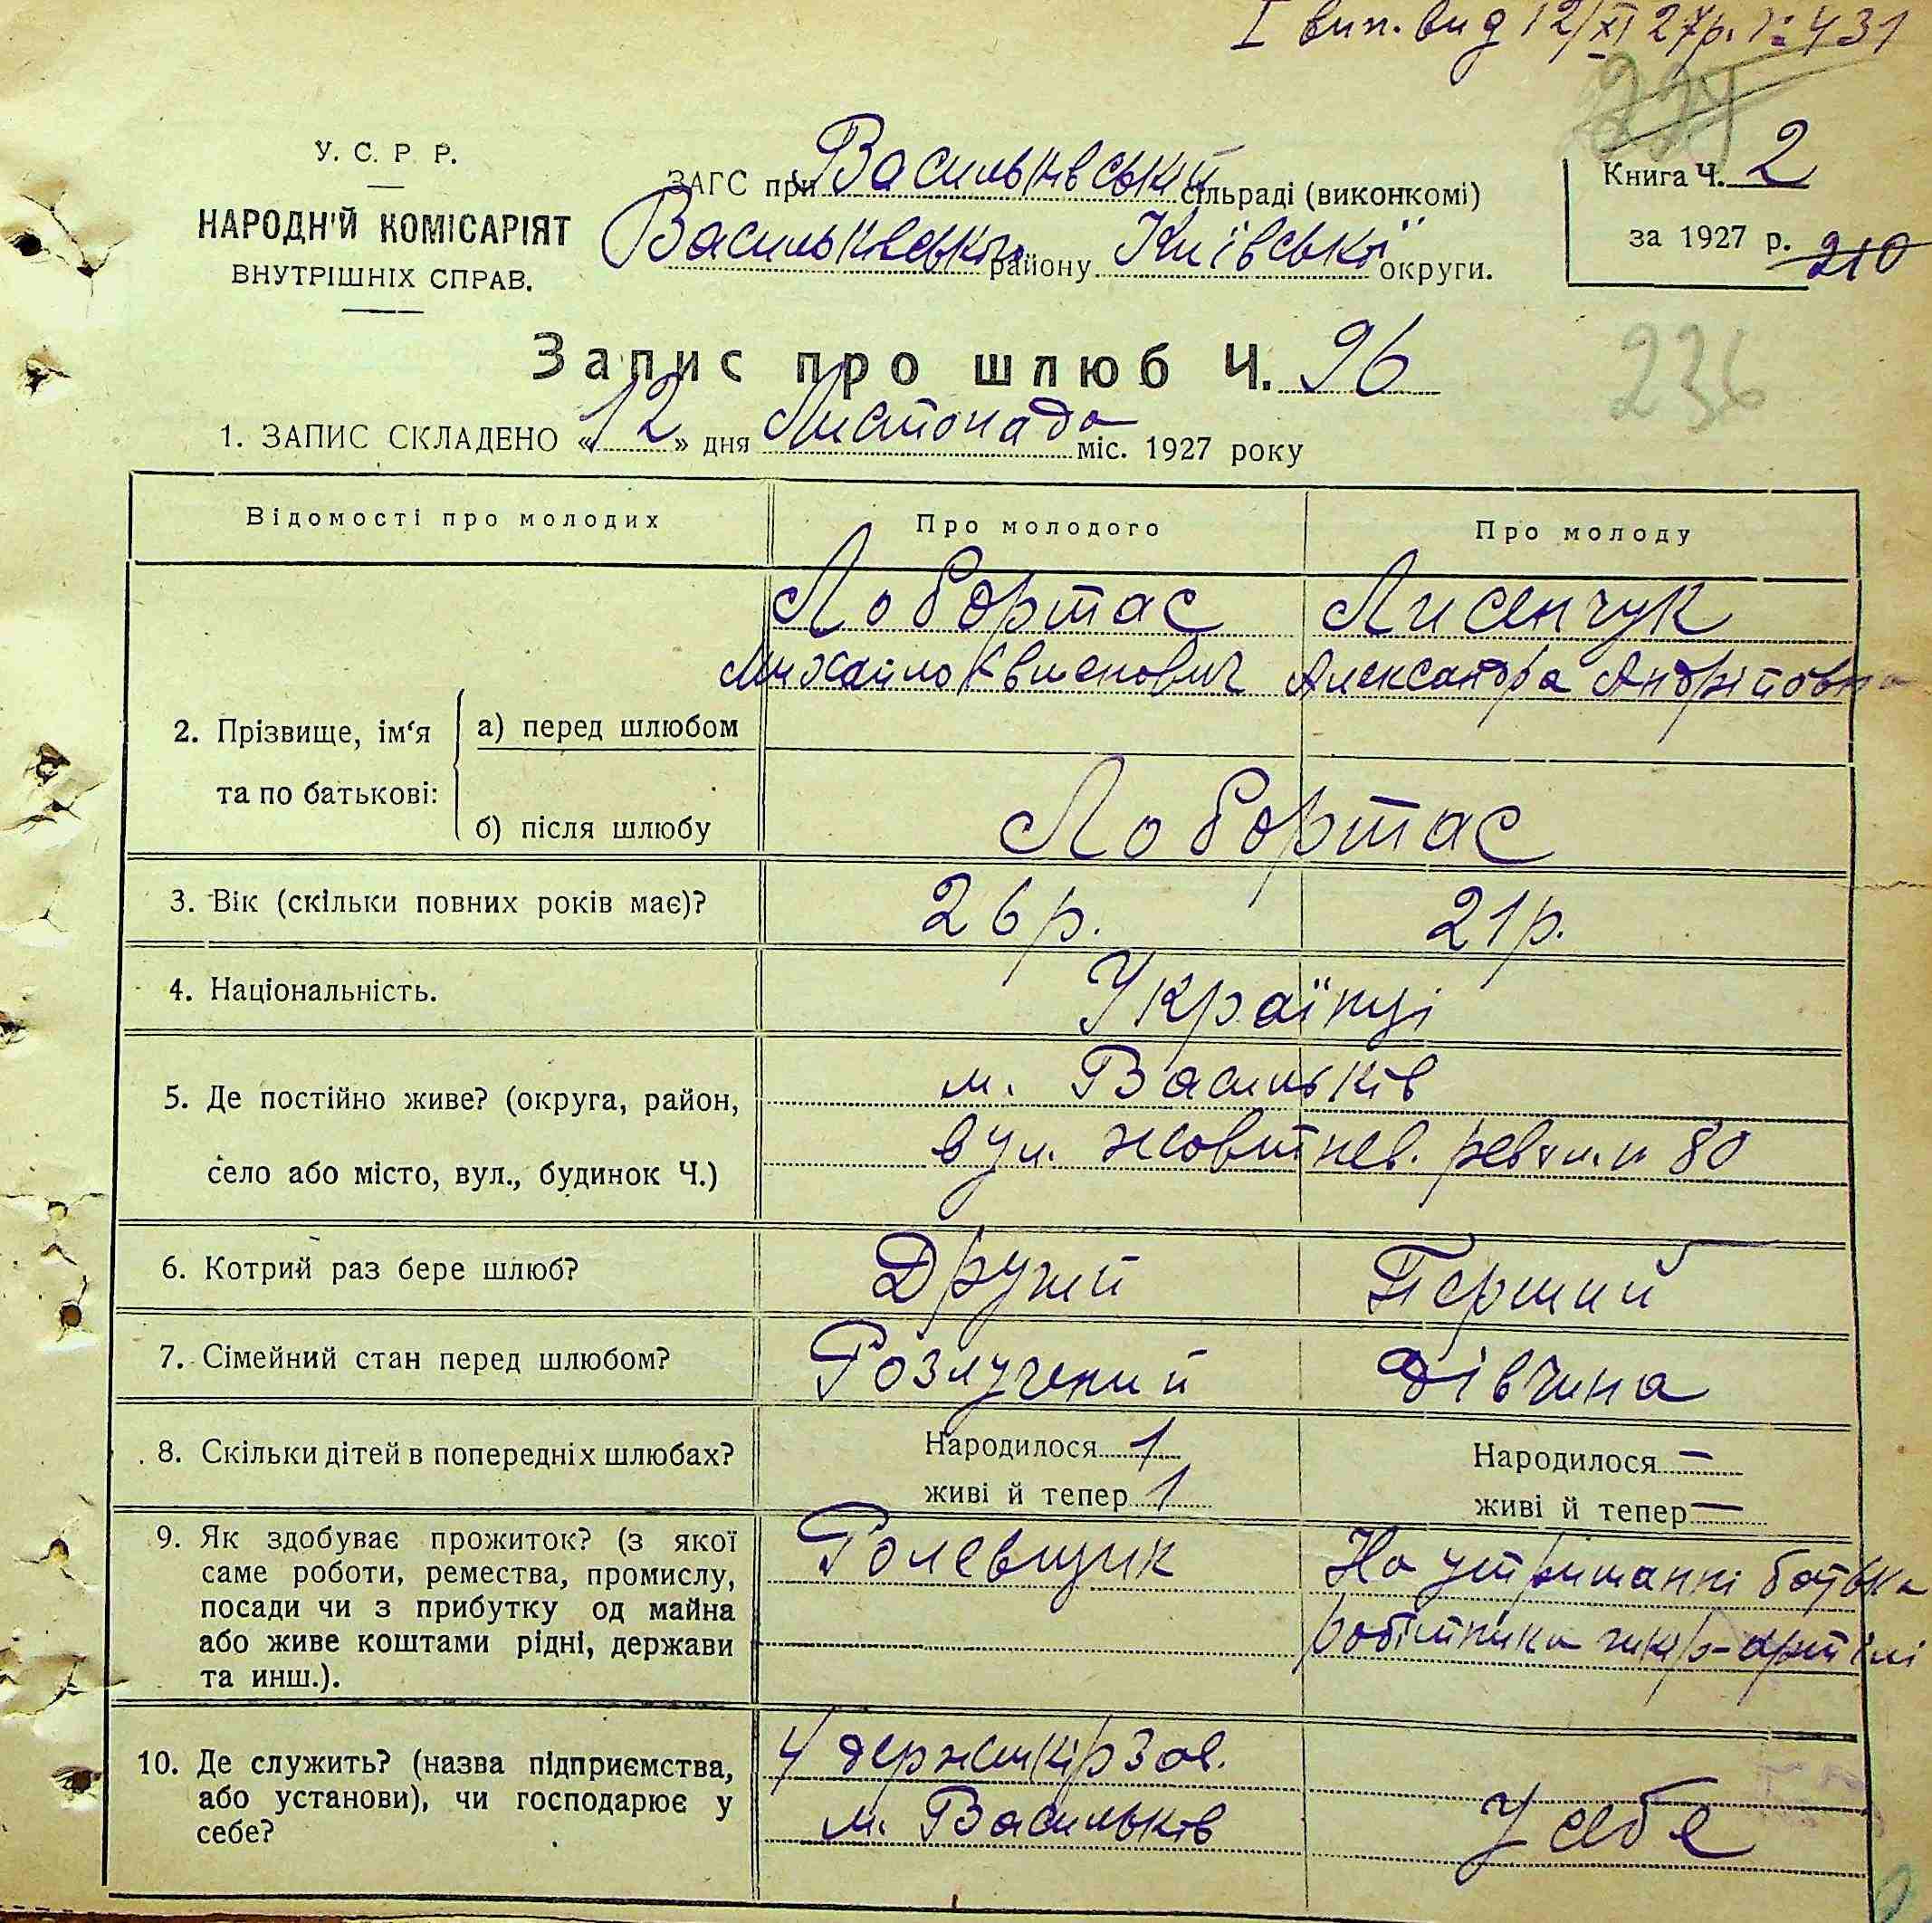 І вип. вид 12/XI 27р. № 431
224
У. С. Р. Р.
НАРОДН'Й КОМІСАРІЯТ
ВНУТРІШНІХ СПРАВ.
ЗАГС при Васильківський сільраді (виконкомі)
Васильківського району Київської округи.
Книга Ч. 2
за 1927 р. 210
236
Запис про шлюб Ч. 96
1. ЗАПИС СКЛАДЕНО «12» дня Листопада міс. 1927 року
Відомості про молодих Про молодого Про молоду
2. Прізвище, ім'я та по батькові:
а) перед шлюбом
Лобортас
Михайло
Лисенчук
Александра Андріївна
б) після шлюбу
Лобортас
3. Вік (скільки повних років має)? 26 р. 21 р.
4. Національність. Українці
5. Де постійно живе? (округа, район, м. Васильків
село або місто, вул., будинок Ч.) вул. Жовтнев. 80
6. Котрий раз бере шлюб? Другий Перший
7. Сімейний стан перед шлюбом? Розлучений дівчина
8. Скільки дітей в попередніх шлюбах? Народилося 1 Народилося —
живі й тепер 1 живі й тепер —
9. Як здобуває прожиток? (з якої
саме роботи, ремества, промислу,
посади чи з прибутку од майна
або живе коштами рідні, держави
та инш.).
На утриманні батька
робітника
10. Де служить? (назва підприємства,
або установи), чи господарює у
себе?
У держшкірзав.
м. Васильків
У себе